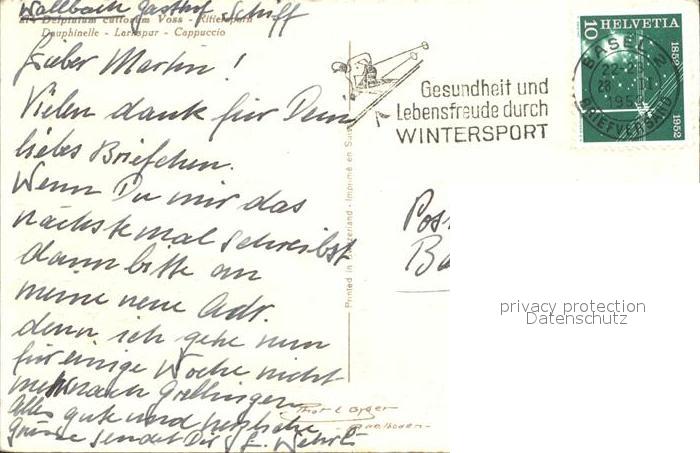 Wallbach Gasthof Schiff
Delphinium cultorum Voss - Rittersporn
Dauphinelle - Larkspur - Cappuccio
Lieber Martin!
Vielen dank für Dein
liebes Briefchen.
Wenn Du mir das
nächste mal schreibst
dann bitte an
meine neue Adr.
denn ich gehe nun
für einige Woche nicht
mehr nach Grellingen
Alles gute und herzliche
Grüsse sendet Dir E. Wehrli
Printed in Switzerland - Imprimé en Suisse
Phot E Gyger
- Adelboden -
Gesundheit und
Lebensfreude durch
WINTERSPORT
10 HELVETIA
1852
1952
BASEL 2
BRIEFVERSAND
Pos
Ba
privacy protection
Datenschutz